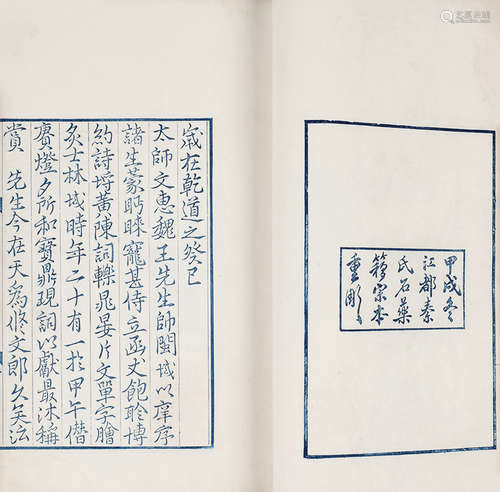 甲戌冬
江都秦
氏石藥
簃宋本
重彫
嵗在乾道之癸巳
太師文惠魏王先生師閩域以庠序
諸生蒙眄睞寵甚侍立函丈飽聆博
約詩埒黃陳詞轢晁晏片文單字膾
炙士林域時年二十有一於甲午僭
賡燈夕所和寶鼎現詞以獻最沐稱
賞 先生今在天爲修文郎久矣泫